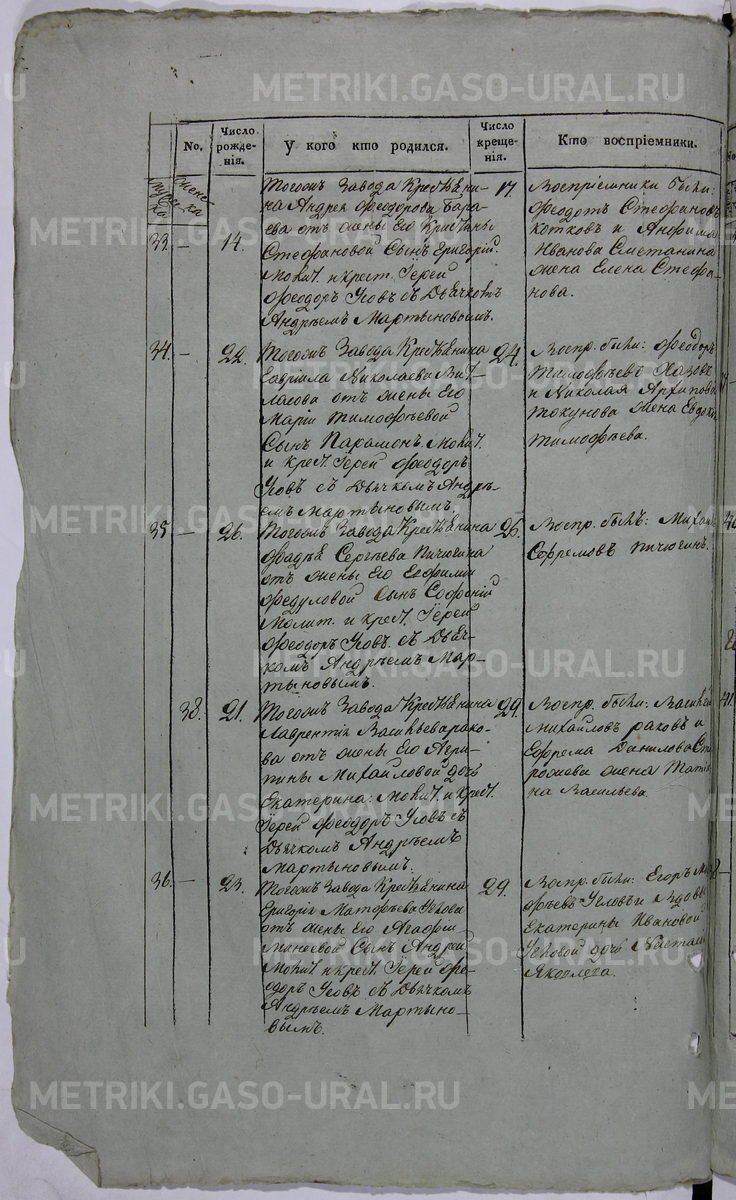 METRIKI.GASO-URAL.RU
No.
Число рожде-
нія.
У кого кто родился.
Число креще-
нія.
Кто воспріемники.
Муже-
ска
Женс-
ка
33. — 14.
Тогожъ Завода Крестьяни-
на Андрея Феодорова
отъ жены Его Кристины
Стефановой Сынъ Григорій.
Молит. и крест. Іерей
Феодоръ Усовъ съ Дьячкомъ
Андреемъ Мартыновымъ.
17.
Воспріемники были:
Феодотъ Стефановъ
Котковъ и Анфима
Иванова Сметанина
жена Елена Стефа-
нова.
34. — 22.
Тогожъ Завода Крестьянина
Гавріила Николаева
отъ жены Его
Маріи Тимофѣевой
Сынъ Парамонъ. Молит.
и крест. Іерей Феодоръ
Усовъ съ Дьячкомъ Андре-
емъ Мартыновымъ.
24.
Воспр. были: Феодоръ
Тимофѣевъ
и Николая Архипова
Токунова жена Евдокія
Тимофѣева.
35 — 26.
Тогожъ Завода Крестьянина
Фадѣя Сергѣева Пичюгина
отъ жены Его Евфиміи
Федуловой Сынъ Софоній
Молит. и крест. Іерей
Феодоръ Усовъ съ Дьяч-
комъ Андреемъ Мар-
тыновымъ.
26.
Воспр. былъ: Михаилъ
Ефремовъ Пичюгинъ.
38. 21.
Тогожъ Завода Крестьянина
Лаврентія Васильева Рако-
ва отъ жены Его Агри-
пины Михайловой дочь
Екатерина: Молит. и крест.
Іерей Феодоръ Усовъ съ
Дьячкомъ Андреемъ
Мартыновымъ.
29.
Воспр. были: Василій
Михайловъ Раковъ и
Ефрема Данилова
жена Татія-
на Васильева.
36. — 23.
Тогожъ Завода Крестьянина
Григорія Матфѣева
отъ жены Его Агафіи
Минеевой Сынъ Андрей
Молит. и крест. Іерей Фео-
доръ Усовъ съ Дьячкомъ
Андреемъ Мартыно-
вымъ.
29.
Воспр. были: Егоръ
и Вдовы
Екатерины Ивановой
дочь
Яковлева.